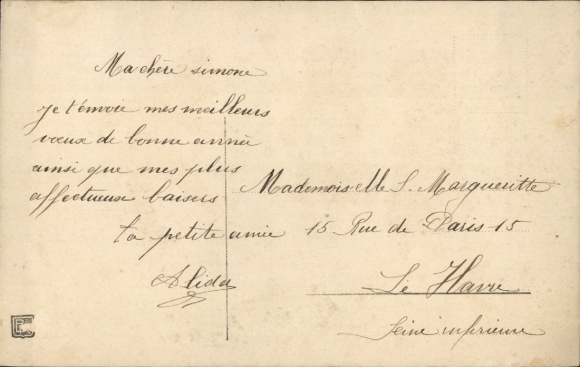 Ma chère simone
je t'envoie mes meilleurs
vœux de bonne année
ainsi que mes plus
affectueux baisers
ta petite amie
Alida
Mademoiselle S. Margueritte
15 Rue de Paris 15
Le Havre
Seine inférieure